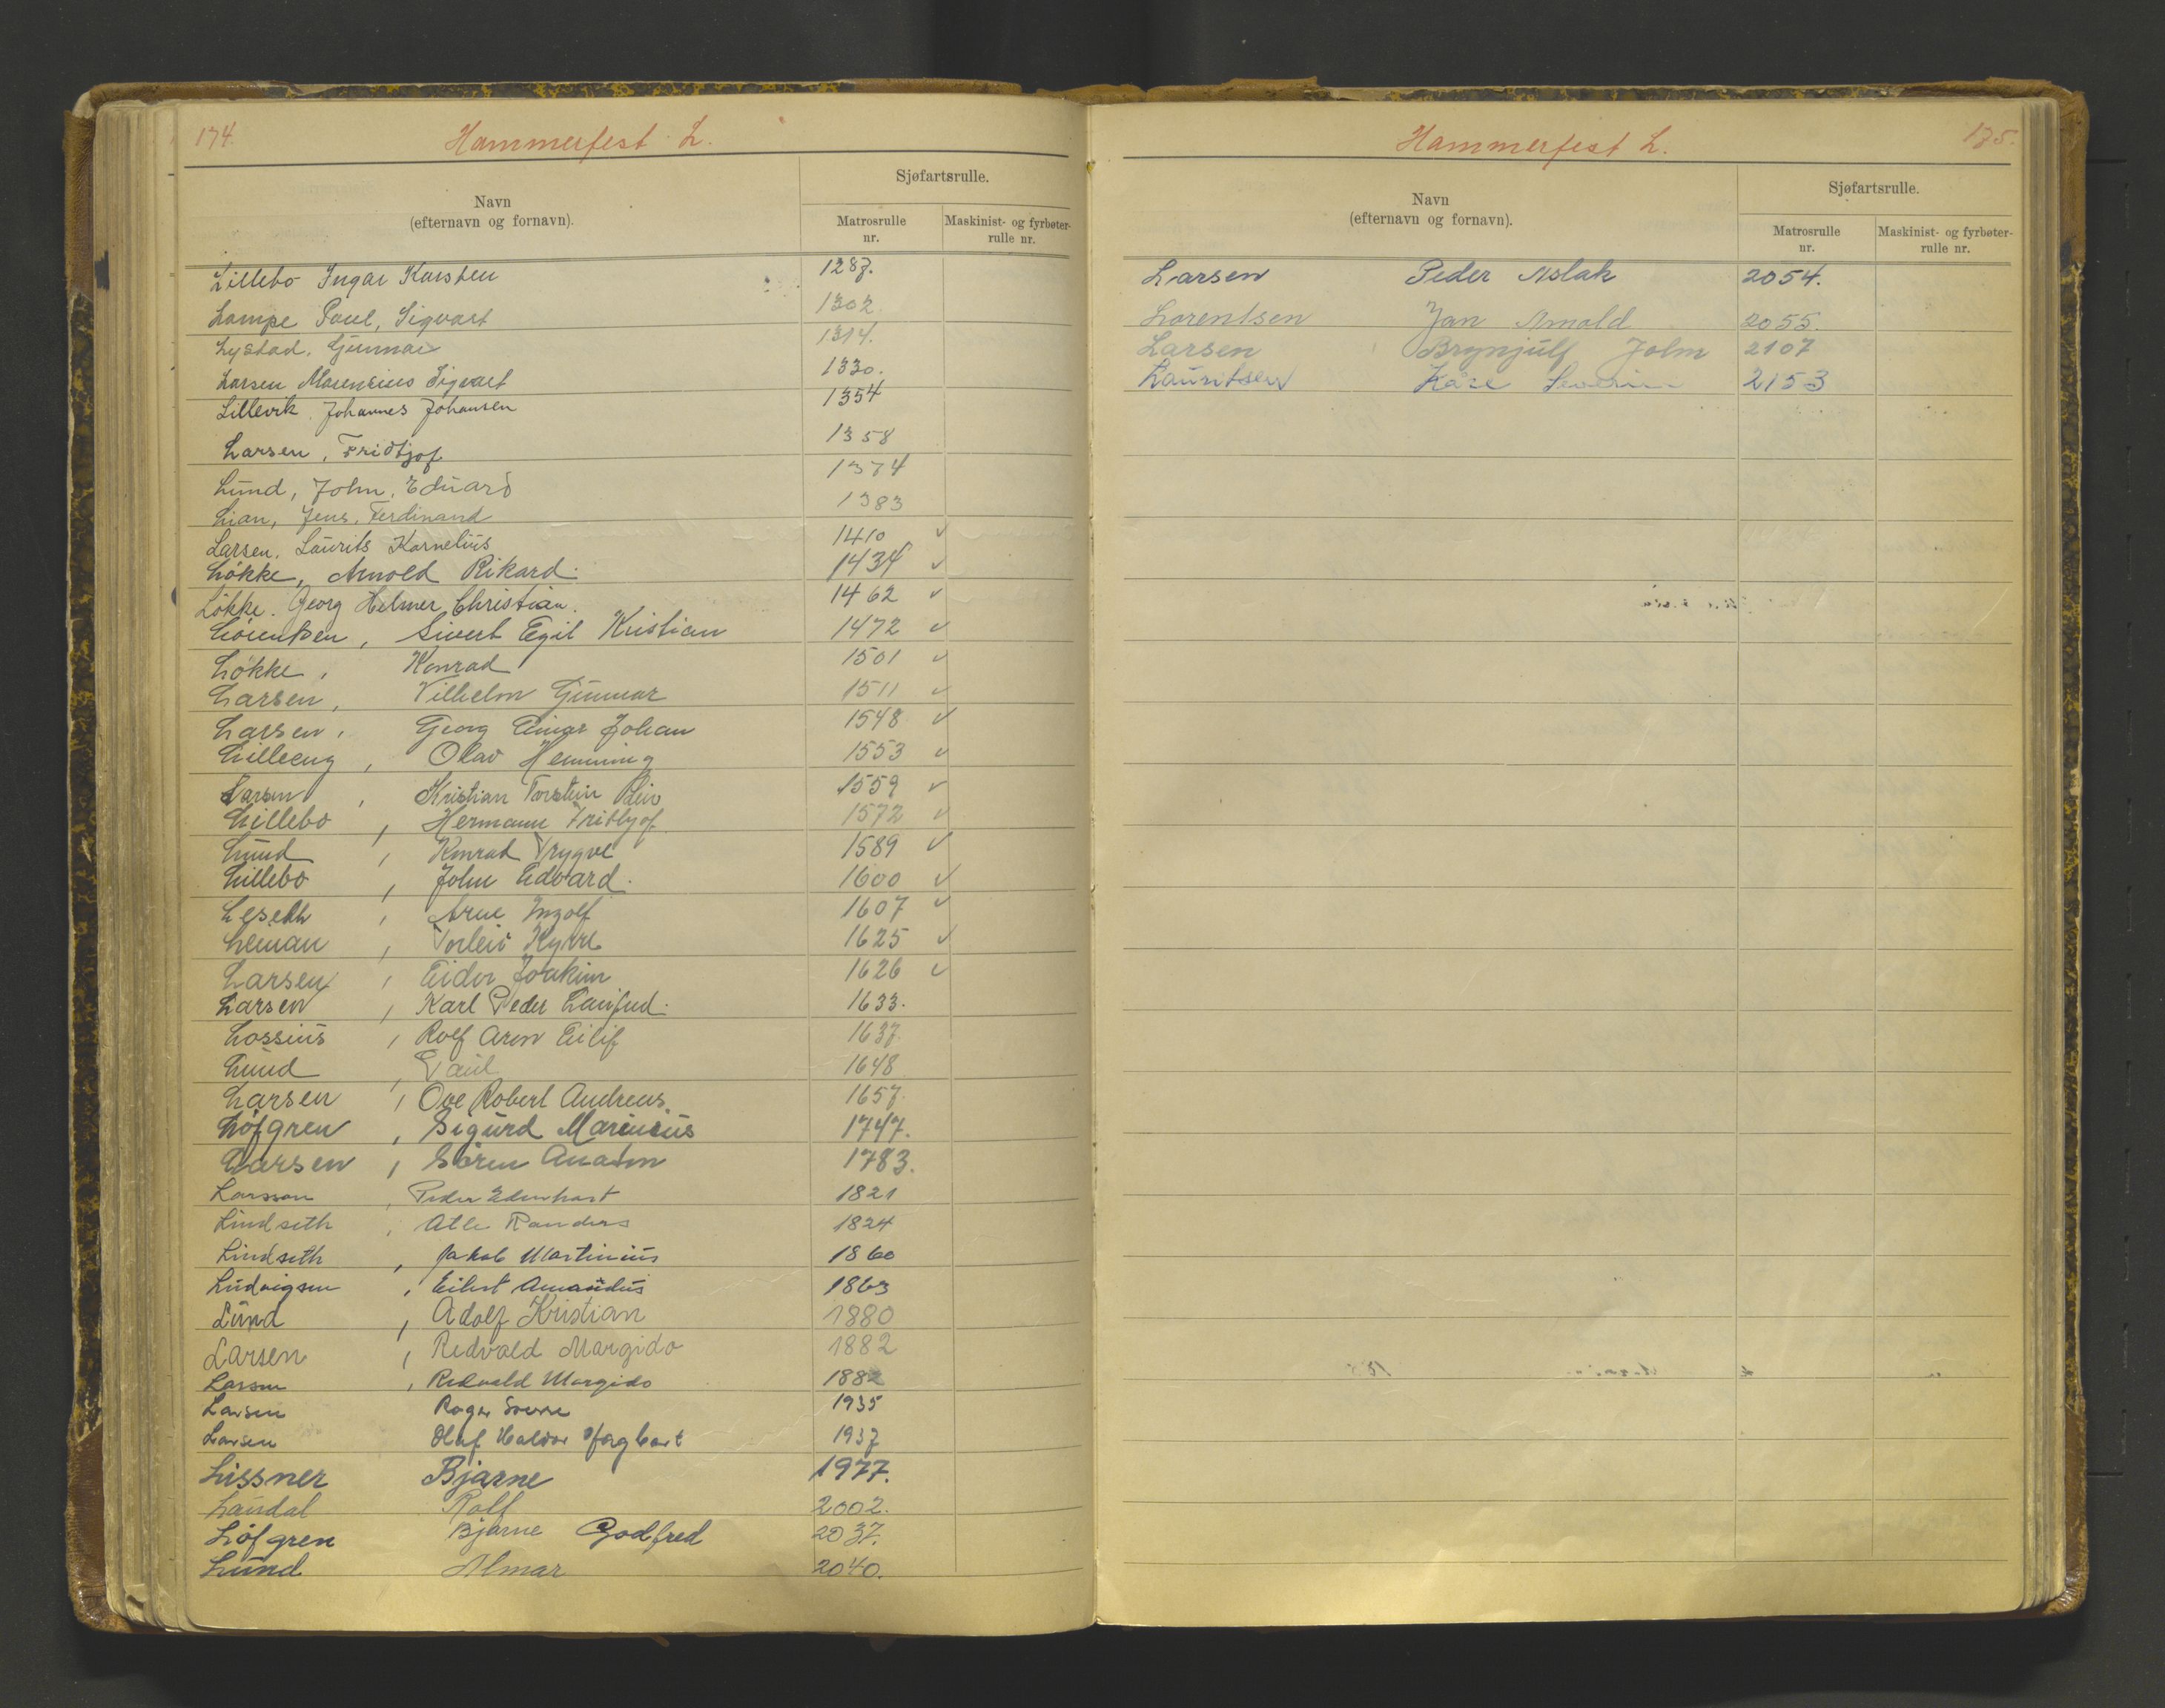 174.
Hammerfest L.
Navn
(efternavn og fornavn).
Sjøfartsrulle.
Matrosrulle
nr.
Maskinist- og fyrbøter-
rulle nr.
Lillebo Ingar Karsten 1287.
Lampe Paul, Sigvart 1302.
Lystad, Gunnar 1314.
Larsen Marensius Sigvart 1330.
Lillevik Johannes Johansen 1354
Larsen, Fridtjof 1358
Lund, John, Eduard 1374
Lian, Jens, Ferdinand 1383
Larsen, Laurits Kornelius 1410 ✓
Løkke, Arnold Rikard. 1434 ✓
Løkke. Georg Helmer Christian. 1462 ✓
Lorentsen, Sivert Egil Kristian 1472 ✓
Løkke, Konrad 1501 ✓
Larsen, Vilhelm Gunnar 1511 ✓
Larsen, Georg Einar Johan 1548 ✓
Lilleeng, Olav Henning 1553 ✓
Larsen, Kristian Torstein Leiv 1559 ✓
Lillebo, Hermann Frithjof 1572 ✓
Lund, Konrad Trygve 1589 ✓
Lillebo, John Edvard. 1600 ✓
Leseth, Arne Ingolf 1607 ✓
Leman, Torleiv Kyrre 1625 ✓
Larsen, Eidor Joakim 1626 ✓
Larsen, Karl Peder 1633.
Lossius, Rolf Aron Eilif 1637.
Lund, Paul 1648
Larsen, Ove Robert Andreas. 1657.
Løfgren, Sigurd Marinius 1747.
Larsen, Søren Anaton 1783.
Larsson, Peder Edenhart 1821
Lindseth, Atle Randers 1824
Lindseth, Jakob Martinius 1860
Ludvigsen, Eilert Amandus 1863
Lund, Adolf Kristian 1880
Larsen, Redvald Margido 1882
Larsen, Redvald Margido 1882
Larsen Roger Sverre 1935
Larsen Olaf Haldor Hagbart 1937
Lissner Bjarne 1977.
Laudal Rolf 2002.
Løfgren Bjarne Godfred 2037.
Lund Almar 2040.
Hammerfest L.
175.
Navn
(efternavn og fornavn).
Sjøfartsrulle.
Matrosrulle
nr.
Maskinist- og fyrbøter-
rulle nr.
Larsen Peder Aslak 2054.
Lorentsen Jan Arnold 2055.
Larsen Brynjulf John 2107
Lauritsen Kåre Severin 2153